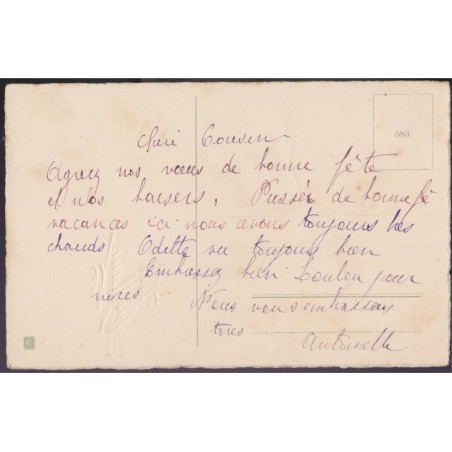 583
Cheri Cousin
Agreez nos vœux de bonne fête
et nos baisers. Passez de bonne
vacances ici nous avons toujours tres
chauds Odette va toujours bien
Embrassez bien Loulou pour
nous Nous vous embrassons
tous
Antoinette